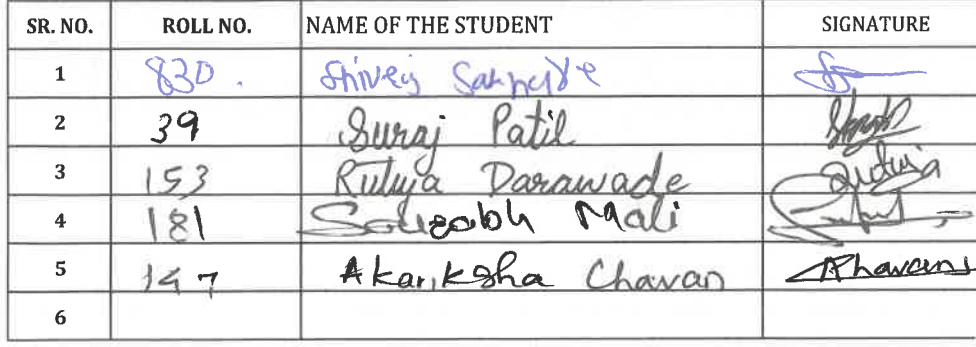 SR. NO. ROLL NO. NAME OF THE STUDENT SIGNATURE
1 830.
2 39 Suraj Patil
3 153 Rutuja Darawade Rutuja
4 181 Sourabh Mali
5 147 Akanksha Chavan AChavan
6